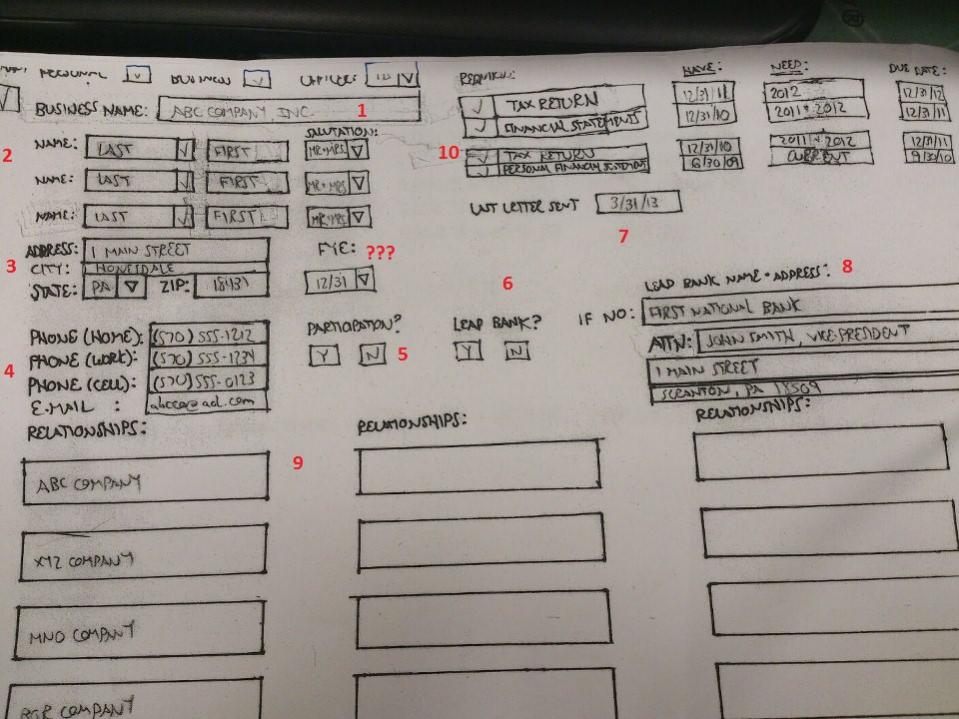 PERSONAL v BUSINESS v
BUSINESS NAME: ABC COMPANY, INC. 1
SALUTATION:
2 NAME: LAST FIRST MR+MRS
NAME: LAST FIRST MR+MRS
NAME: LAST FIRST MR+MRS
3 ADDRESS: 1 MAIN STREET
CITY: HONESDALE
STATE: PA ZIP: 18431
FYE: ???
12/31
4 PHONE (HOME): (570) 555-1212
PHONE (WORK): (570) 555-1234
PHONE (CELL): (570) 555-0123
E-MAIL : abcco@aol.com
PARTICIPATION?
Y N 5
6
LEAD BANK?
Y N
HAVE: NEED: DUE DATE:
TAX RETURN 12/31/11 2012 12/31/12
FINANCIAL STATEMENTS 12/31/10 2011 + 2012 12/31/11
10 TAX RETURN 12/31/10 2011 + 2012 12/31/11
PERSONAL FINANCIAL 6/30/09 CURRENT 9/30/10
LAST LETTER SENT 3/31/13
7
LEAD BANK NAME + ADDRESS: 8
IF NO: FIRST NATIONAL BANK
ATTN: JOHN SMITH, VICE-PRESIDENT
1 MAIN STREET
SCRANTON, PA 18509
RELATIONSHIPS: RELATIONSHIPS: RELATIONSHIPS:
ABC COMPANY 9
XYZ COMPANY
MNO COMPANY
COMPANY